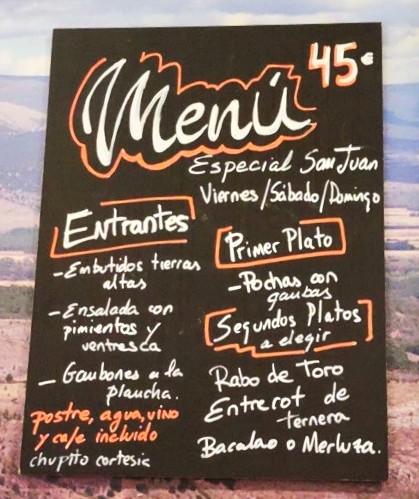 Menú 45€
Especial San Juan
Viernes/Sábado/Domingo
Entrantes
-Embutidos tierras
altas
-Ensalada con
pimientos y
ventresca
-Gambones a la
plancha.
postre, agua, vino
y cafe incluido
chupito cortesia
Primer Plato
-Pochas con
gambas
Segundos Platos
a elegir
Rabo de Toro
Entrecot de
ternera
Bacalao o Merluza.